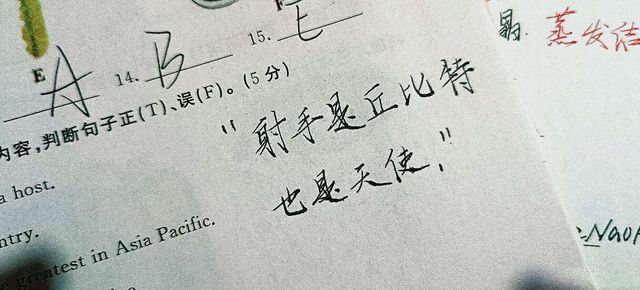 E
A 14. B 15. E
内容,判断句子正(T)、误(F)。(5分)
"射手是丘比特
也是天使,"
a host.
ntry.
greatest in Asia Pacific.
易. 蒸发结
NaOH